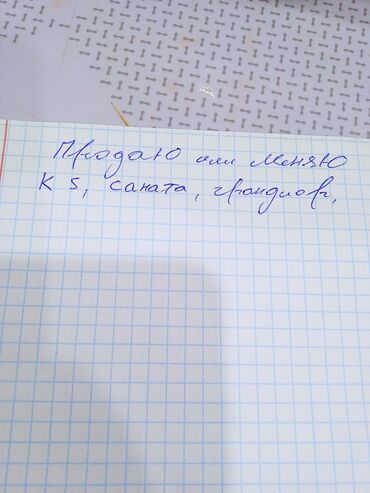 Продаю или меняю
К 5, саната, грандиор,